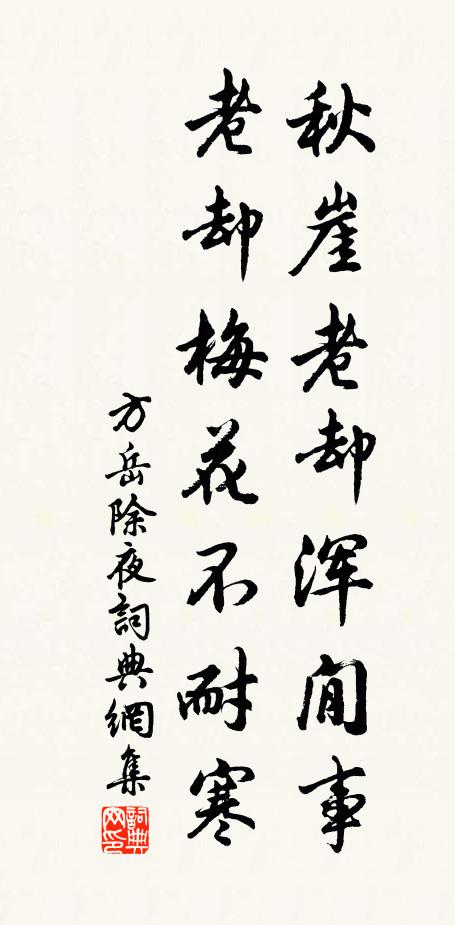 秋崖老却浑閒事
老却梅花不耐寒
方岳除夜詞典網集
詞典網印